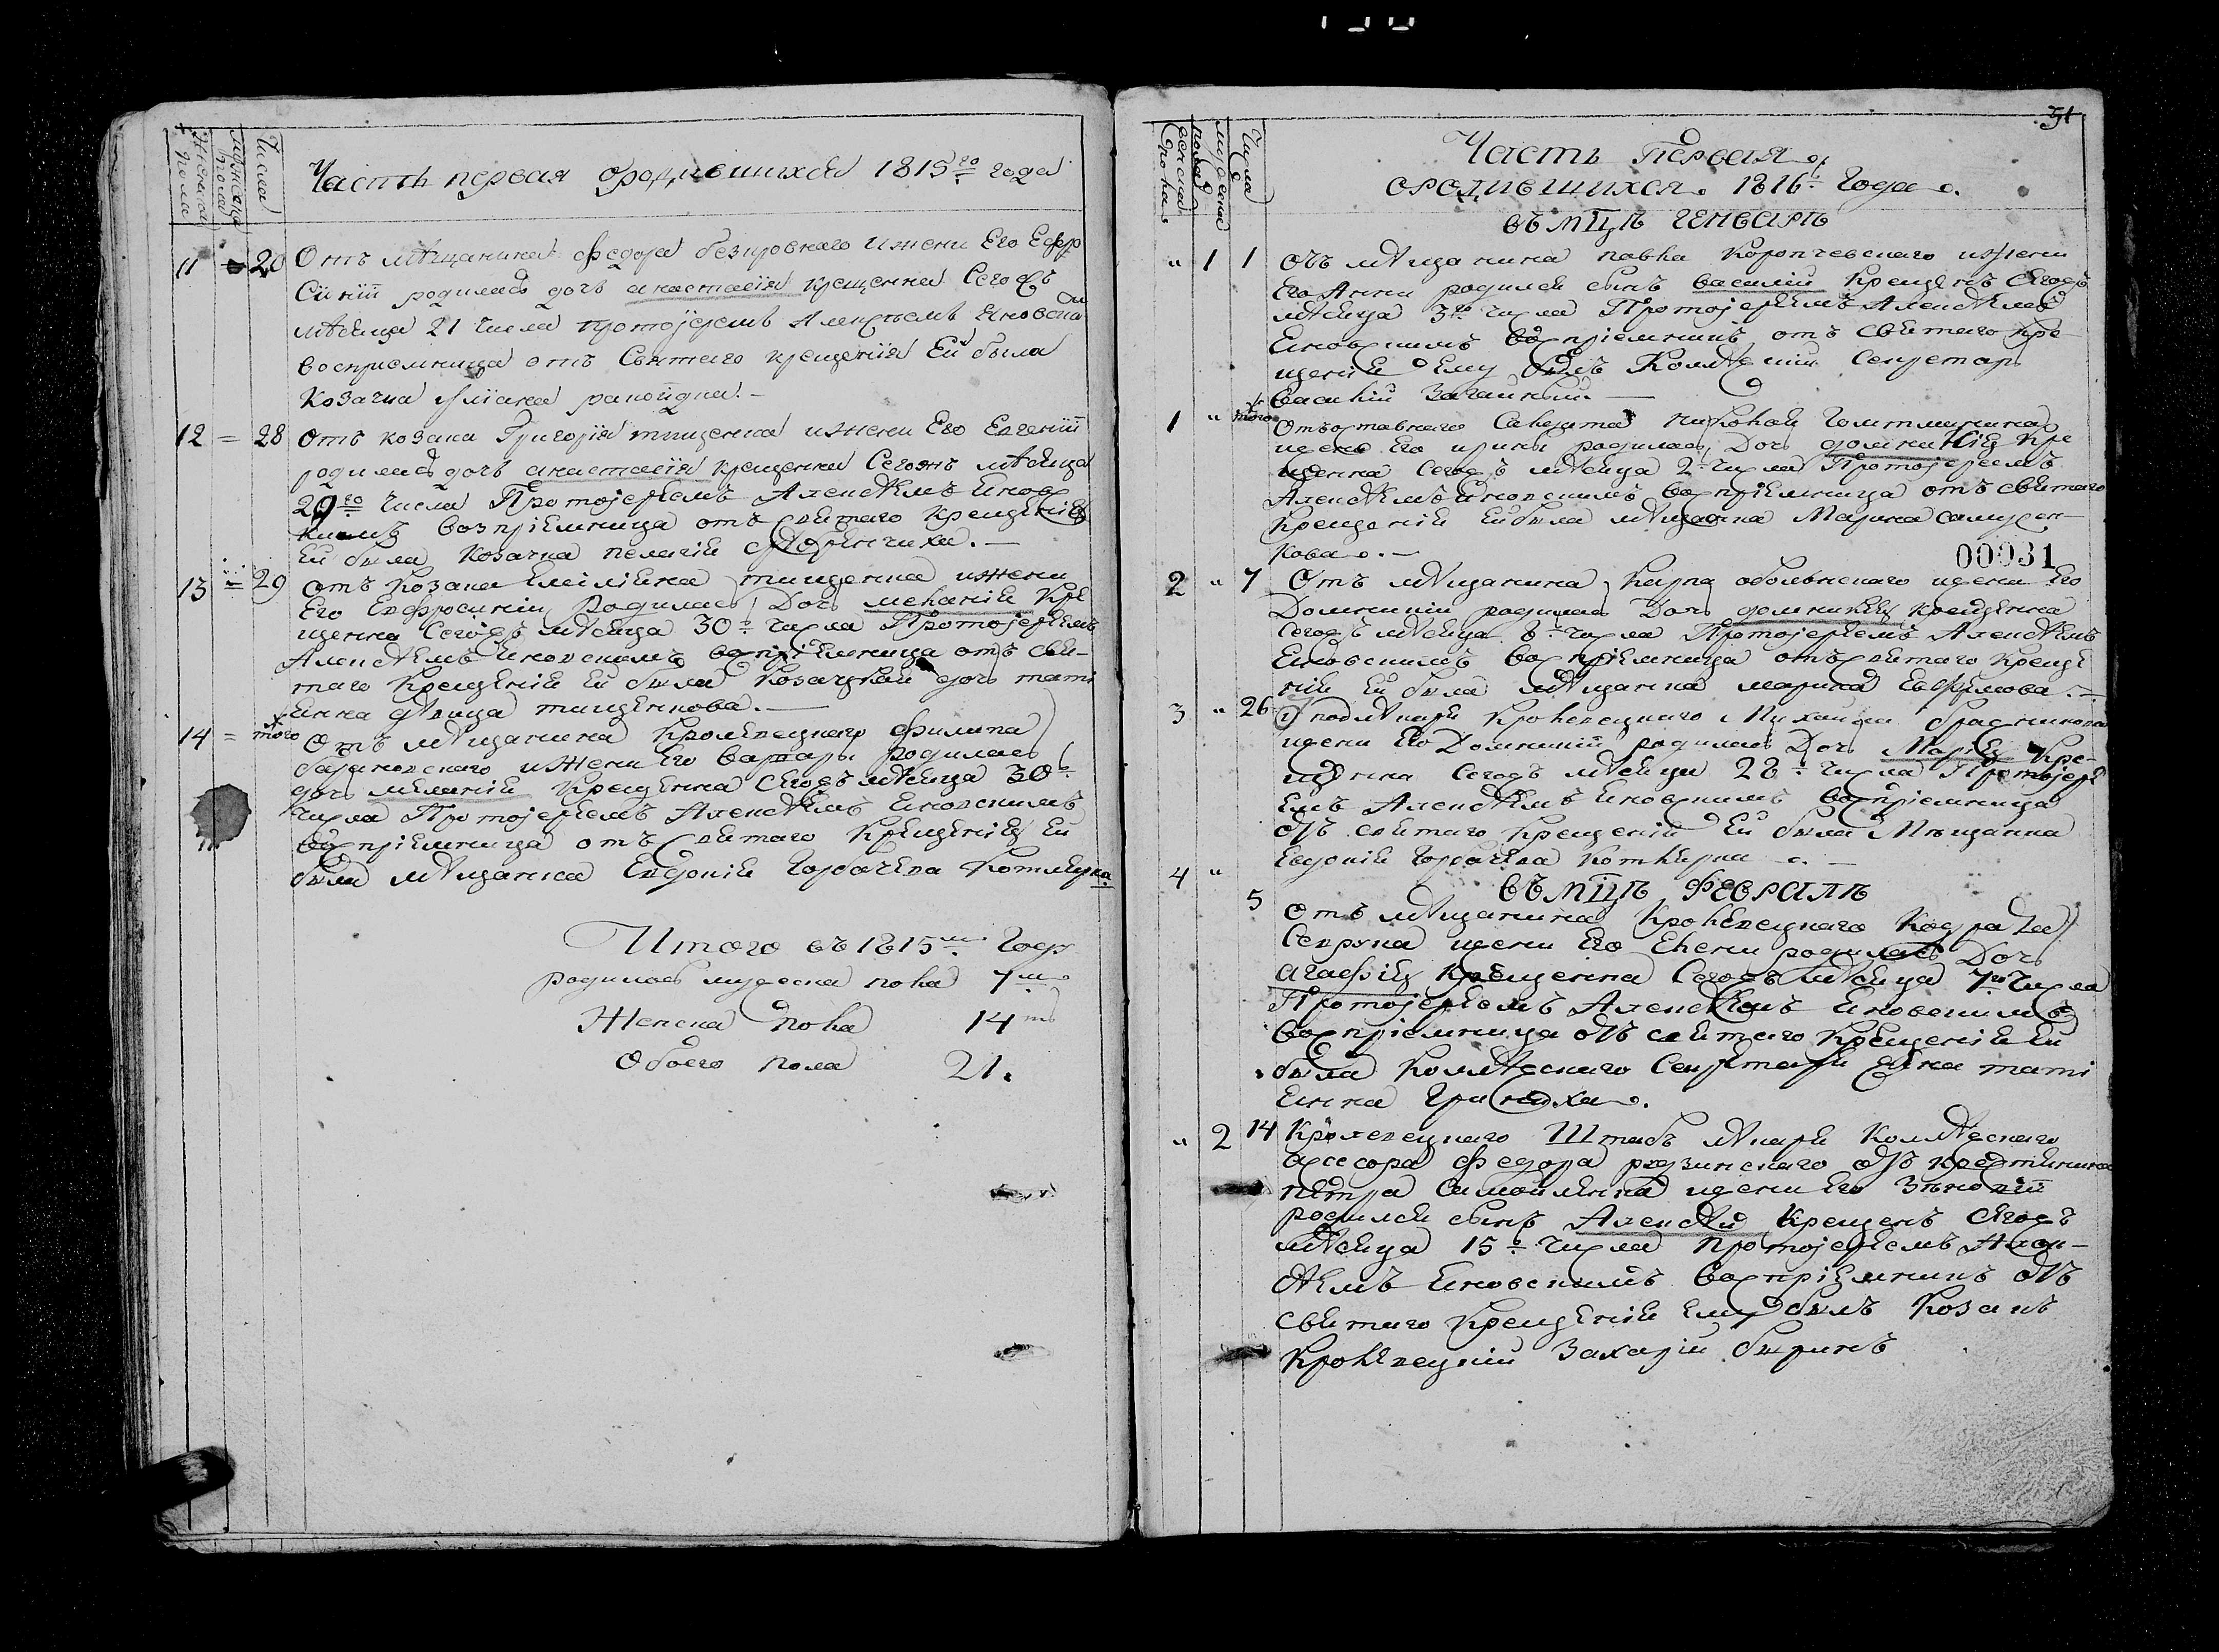 Числа
Мужеска пола
Женска пола
Часть первая о родившихся 1815го года
11 = 20 Отъ мѣщанина Федора безпровнаго и жены Его Ефро
Сінїи родилась дочь анастасїя крещенна Сего жъ
мѣсяца 21 числа протоіереемъ Алексѣемъ Еновски
восприемница отъ Святаго крещенїя Ей была
Козачка
12 = 28 Отъ козака Григорїя тищенка и жены Его Евгенїи
родилась дочь анастасїя крещенна Сегожъ мѣсяца
29го числа Протоіереемъ Алексѣемъ Еновс
кимъ воспріемница отъ святаго Крещенія
Ей была Козачка пелагія
13 = 29 отъ Козака Емілїана тищенка и жены
Его Евфросиніи Родилась Дочь меланія Кре
щенна Сегожъ мѣсяца 30го числа Протоіереемъ
Алексѣемъ Еновскимъ воспріемница отъ свя-
таго Крещенія Ей была Козачкая дочь тати
Енна дѣвица тищенкова.
14 = того Отъ мѣщанина Кролевецкаго Филипа
барановскаго и жены Его варвары родилась
дочь меланія Крещенна Сегожъ мѣсяца 30го
числа Протоіереемъ Алексѣемъ Еновскимъ
воспріемница отъ святаго Крещенія Ей
была мѣщанка Евдокія Горбачева Котлярка
Итого въ 1815мъ Году
родилось мужеска пола 7мъ
Женска пола 14ть
Обоего пола 21.
31
Числа
мужеска пола
женска пола
Часть Первая
о родившихся 1816го Года
въ мцѣ генварѣ
" 1 1 отъ мѣщанина павла Коропчевскаго и жены
Его Анны родился сынъ василій Крещенъ Сегожъ
мѣсяца 3го числа Протоіереемъ Алексѣемъ
Еновскимъ воспріемникъ отъ святаго кре
щенія Ему былъ Коллѣжскій Секретарь
Василій
1 " того Отъ отставнаго Николая
жены Его ирины родилась Дочь домникія Кре
щенна Сегожъ мѣсяца 2го числа Протоіереемъ
Алексѣемъ Еновскимъ воспріемница отъ святаго
Крещенія Ей была мѣщанка Марина самусен
кова.
00031
2 " 7 Отъ мѣщанина Карпа оболонскаго жены Его
Домникіи родилась Дочь домникія крещенна
Сегожъ мѣсяца 8го числа Протоіереемъ Алексѣемъ
Еновскимъ воспріемница отъ святаго Креще
нія Ей была мѣщанка марина Евфимова.
3 " 26 подлѣкаря Кролевецкаго Михаила
жены Его Домникіи родилась Дочь Марія Кре-
щенна Сегожъ мѣсяца 28го числа Протоіере
Емъ Алексѣемъ Еновскимъ воспріемница
отъ святаго Крещенія Ей была Мѣщанка
Евдокія Горбачева Котлярка
въ мцѣ Февралѣ
4 " 5 отъ мѣщанина Кролевецкаго Кодрата
Севрука жены Его Елены родилась Дочь
агафія Крещенна Сегожъ мѣсяца 7го числа
Протоіереемъ Алексѣемъ Еновскимъ
воспріемница отъ святаго Крещенія Ей
была Коллѣжскаго Секретаря жена тати
Енна
" 2 14 Кролевецкаго Штабъ лѣкаря Коллѣжскаго
асесора Федора отъ крестьянина
петра Самойленка жены Его Зѣновіи
родился сынъ Алексѣй Крещенъ Сегожъ
мѣсяца 15го числа протоіереемъ Алек-
сѣемъ Еновскимъ воспріемникъ отъ
святаго Крещенія Ему былъ Козакъ
Кролевецкій Захарій